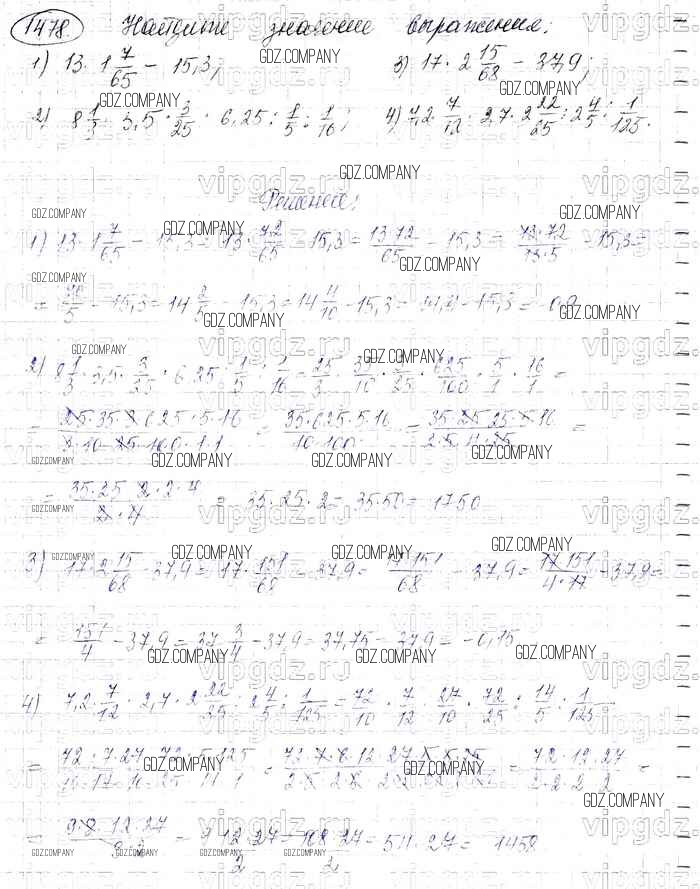 1478 Найдите значение выражения:
1) 13 · 1 7/65 − 15,3; 3) 17 · 2 15/68 − 37,9;
2) 8 1/3 · 3,5 · 3/25 · 6,25 : 1/5 : 1/16; 4) 7,2 · 7/12 · 2,7 · 2 22/25 : 2 4/5 : 1/125.
Решение:
1) 13 · 1 7/65 − 15,3 = 13 · 72/65 − 15,3 = 13·72/65 − 15,3 = 13·72/13·5 − 15,3 =
= 72/5 − 15,3 = 14 2/5 − 15,3 = 14 4/10 − 15,3 = 14,4 − 15,3 = −0,9
2) 8 1/3 · 3,5 · 3/25 · 6,25 : 1/5 : 1/16 = 25/3 · 35/10 · 3/25 · 625/100 · 5/1 · 16/1 =
= 25·35·3·625·5·16/3·10·25·100·1·1 = 35·625·5·16/10·100 = 35·25·25·5·16/2·5·4·25 =
= 35·25·2·2·4/2·4 = 35·25·2 = 35·50 = 1750
3) 17 · 2 15/68 − 37,9 = 17 · 151/68 − 37,9 = 17·151/68 − 37,9 = 17·151/4·17 − 37,9 =
= 151/4 − 37,9 = 37 3/4 − 37,9 = 37,75 − 37,9 = −0,15
4) 7,2 · 7/12 · 2,7 · 2 22/25 : 2 4/5 : 1/125 = 72/10 · 7/12 · 27/10 · 72/25 : 14/5 : 1/125 =
= = 72·12·27/2·2·2·2 =
= 9·8·12·27 = 9·12·27/2 = 108·27/2 = 54·27 = 1458
GDZ.COMPANY
vipgdz.ru